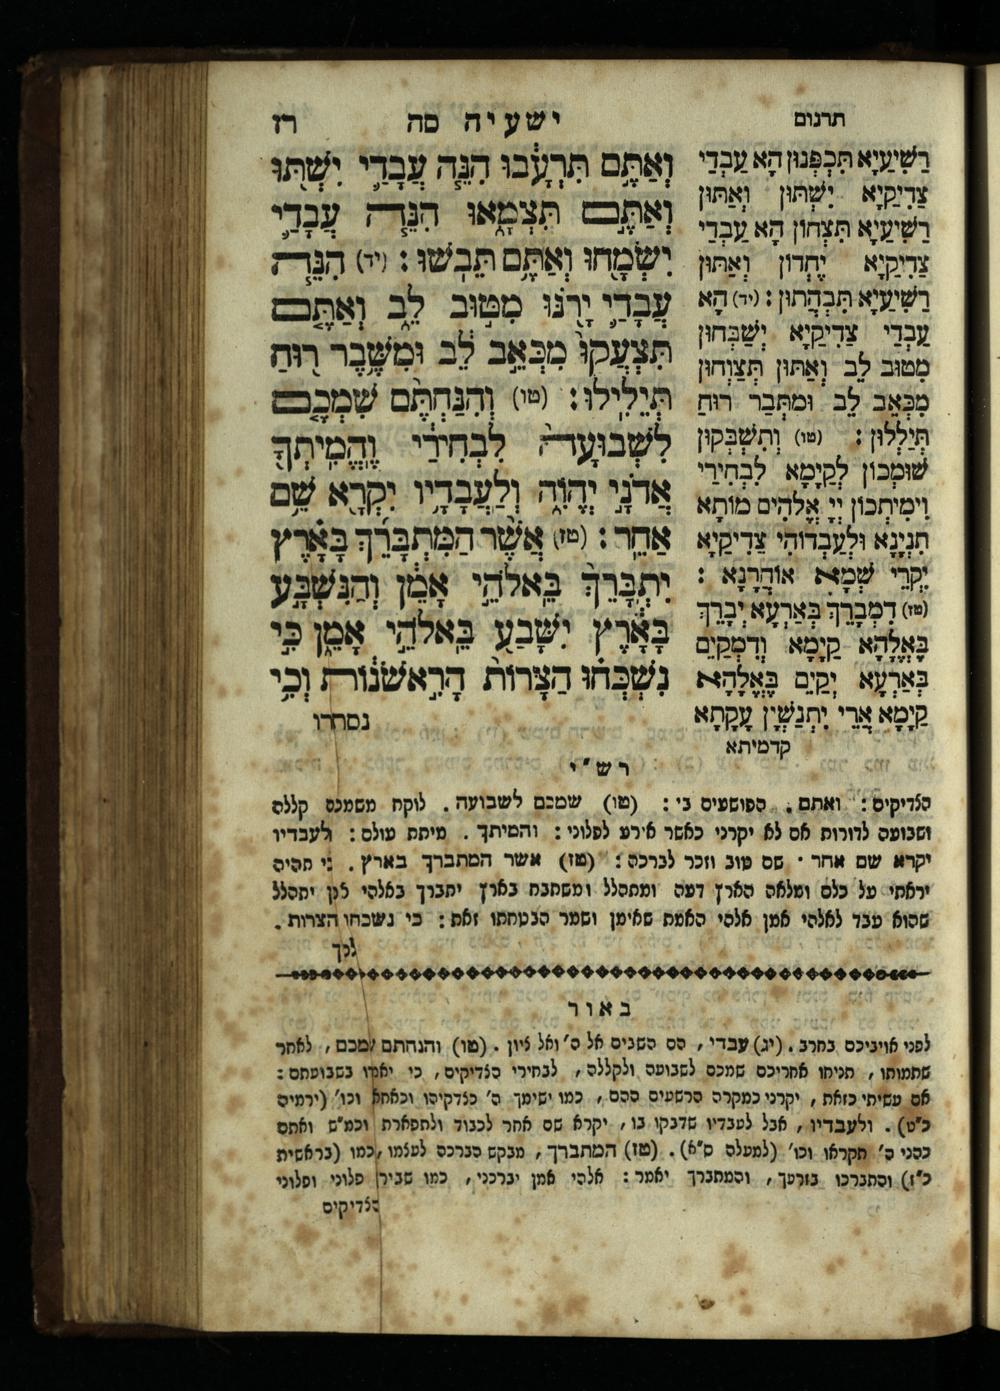 תרגום
ישעיה סה
רז
רַשִׁיעַיָא תִּכְפְּנוּן הָא עַבְדֵי
צַדִיקַיָא יִשְׁתּוּן וְאַתּוּן
רַשִׁיעַיָא תִּצְחוֹן הָא עַבְדֵי
צַדִיקַיָא יֶחְדוֹן וְאַתּוּן
רַשִׁיעַיָא תִּבְהֲתוּן : (יד) הָא
עַבְדֵי צַדִיקַיָא יְשַׁבְּחוּן
מִטּוּב לֵב וְאַתּוּן תְּצַוְחוּן
מִכְּאֵב לֵב וּמִתְּבַר רוּחַ
תְּיַלְלוּן : (טו) וְתִשְׁבְּקוּן
שׁוּמְכוֹן לְקַיָמָא לִבְחִירַי
וִימִיתְכוֹן יְיָ אֱלֹהִים מוֹתָא
תִנְיָנָא וּלְעַבְדוֹהִי צַדִיקַיָא
יִקְרֵי שְׁמָא אוֹחֲרָנָא :
(טז) דִמְבָרֵךְ בְּאַרְעָא יְבָרֵךְ
בֶּאֱלָהָא קַיָמָא וְדִמְקַיֵם
בְּאַרְעָא יְקַיֵם בֶּאֱלָהָא
קַיָמָא אֲרֵי יִתְנַשְׁיָן עָקָתָא
קדמיתא
וְאַתֶּ֣ם תִּרְעָ֔בוּ הִנֵּ֧ה עֲבָדַ֛י יִשְׁתּ֖וּ
וְאַתֶּ֣ם תִּצְמָ֑אוּ הִנֵּ֧ה עֲבָדַ֛י
יִשְׂמָ֖חוּ וְאַתֶּ֥ם תֵּבֹֽשׁוּ : (יד) הִנֵּ֧ה
עֲבָדַ֛י יָרֹ֖נּוּ מִטּ֣וּב לֵ֑ב וְאַתֶּ֤ם
תִּצְעֲקוּ֙ מִכְּאֵ֣ב לֵ֔ב וּמִשֵּׁ֥בֶר ר֖וּחַ
תְּיֵלִֽילוּ : (טו) וְהִנַּחְתֶּ֨ם שִׁמְכֶ֤ם
לִשְׁבוּעָה֙ לִבְחִירַ֔י וֶהֱמִֽיתְךָ֖
אֲדֹנָ֣י יֱהֹוִ֑ה וְלַעֲבָדָ֥יו יִקְרָ֖א שֵׁ֥ם
אַחֵֽר : (טז) אֲשֶׁ֨ר הַמִּתְבָּרֵ֜ךְ בָּאָ֗רֶץ
יִתְבָּרֵךְ֙ בֵּֽאלֹהֵ֣י אָמֵ֔ן וְהַנִּשְׁבָּ֣ע
בָּאָ֔רֶץ יִשָּׁבַ֖ע בֵּֽאלֹהֵ֣י אָמֵ֑ן כִּ֣י
נִשְׁכְּח֗וּ הַצָּרוֹת֙ הָרִ֣אשֹׁנ֔וֹת וְכִ֥י
נסתרו
רש"י
הצדיקים : ואתם . הפושעים בי : (טו) שמכם לשבועה . לוקח משמכם קללה
ושבועה לדורות אם לא יקרני כאשר אירע לפלוני : והמיתך . מיתת עולם : ולעבדיו
יקרא שם אחר . שם טוב וזכר לברכה : (טז) אשר המתברך בארץ . כי תהיה
יראתי על כלם ומלאה הארץ דעה ומתהלל ומשתבח בארץ יתברך באלהי לכן יתהלל
שהוא עבד לאלהי אמן אלהי האמת שאימן ושמר הבטחתו זאת : כי נשכחו הצרות .
לכך
באור
לפני אויביכם בחרב . (יג) עבדי , הם השבים אל ה' ואל ציון . (טו) והנחתם שמכם , לאחר
שתמותו , תניחו אחריכם שמכם לשבועה ולקללה , לבחירי הצדיקים , כי יאמרו בשבועתם :
אם עשיתי כזאת , יקרני כמקרה הרשעים ההם , כמו ישימך ה' כצדקיהו וכאחאב וכו' (ירמיה
כ"ט) . ולעבדיו , אבל לעבדיו שדבקו בו , יקרא שם אחר לכבוד ולתפארת וכמ"ש ואתם
כהני ה' תקראו וכו' (למעלה ס"א) . (טז) המתברך , מבקש הברכה לעצמו , כמו (בראשית
כ"ו) והתברכו בזרעך , והמתברך יאמר : אלהי אמן יברכני , כמו שבירך פלוני ופלוני
הצדיקים